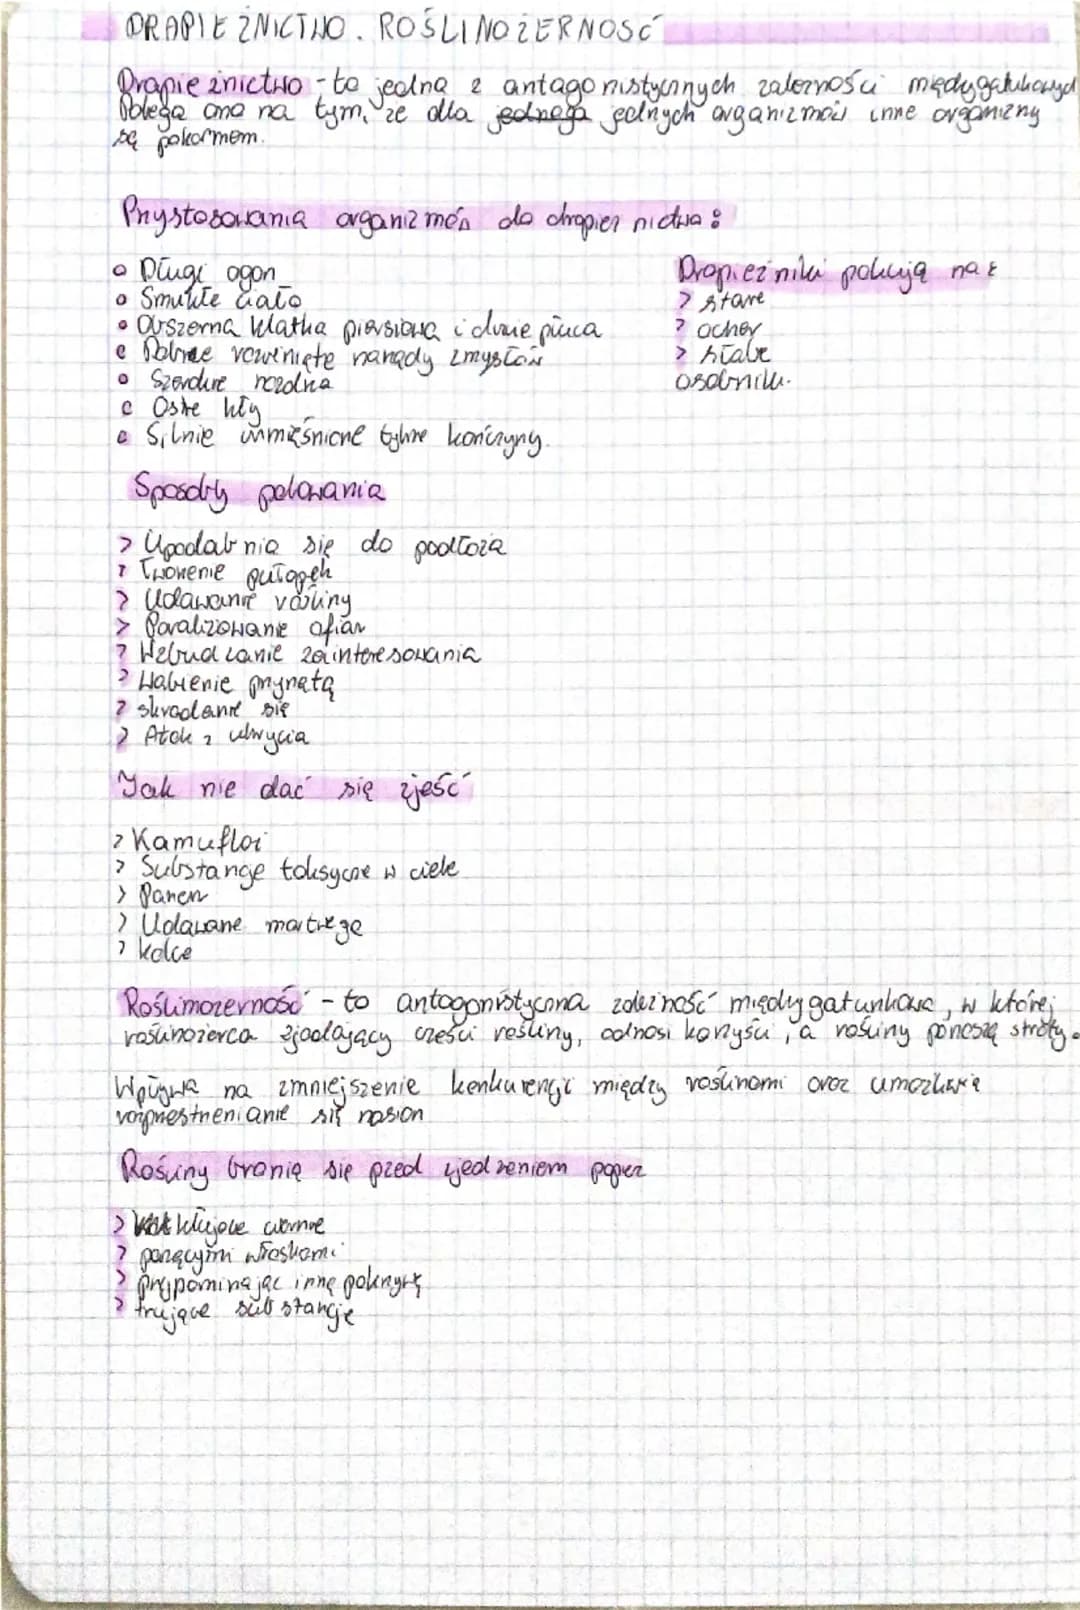 DRAPIEŻNICTWO. ROŚLINOŻERNOŚĆ
Drapieżnictwo - to jedna z antagonistycznych zależności międzygatukowych
Polega ono na tym, że dla jednego jednych organizmów inne organizmy
są pokarmem.
Przystosowania organizmów do drapieżnictwa:
• Długi ogon
• Smukłe ciało
• Obszerna klatka piersiowa i duże płuca
• Dobrze rozwinięte narządy zmysłów
• Szerokie nozdrza
• Ostre kły
• Silnie umięśnione tylne kończyny.
Drapieżniki polują na:
> stare
> chore
> słabe
osobniki.
Sposoby polowania
> Upodabnia się do podłoża
> Tworzenie pułapek
> Udawanie rośliny
> Paraliżowanie ofiar
> Wzbudzanie zainteresowania
> Wabienie przynętą
> skradanie się
> Atak z ukrycia
Jak nie dać się zjeść
> Kamuflaż
> Substancje toksyczne w ciele
> Pancerz
> Udawanie martwego
> kolce
Roślinożerność - to antagonistyczna zależność międzygatunkowa, w której
roślinożerca zjadający części rośliny, odnosi korzyści, a rośliny ponoszą straty.
Wpływa na zmniejszenie konkurencji między roślinami oraz umożliwia
rozprzestrzenianie się nasion
Rośliny bronią się przed zjedzeniem poprzez
> kłujące ciernie
> parzącymi włoskami
> przypominając inną pokrzywę
> trujące substancje